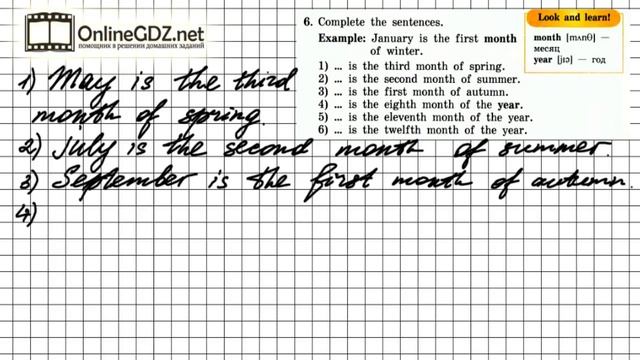 OnlineGDZ.net
помощник в решении домашних заданий
6. Complete the sentences.
Example: January is the first month
of winter.
1) ... is the third month of spring.
2) ... is the second month of summer.
3) ... is the first month of autumn.
4) ... is the eighth month of the year.
5) ... is the eleventh month of the year.
6) ... is the twelfth month of the year.
Look and learn!
month [mʌnθ] —
месяц
year [jɪə] — год
1) May is the third
month of spring.
2) July is the second month of summer.
3) September is the first month of autumn.
4)